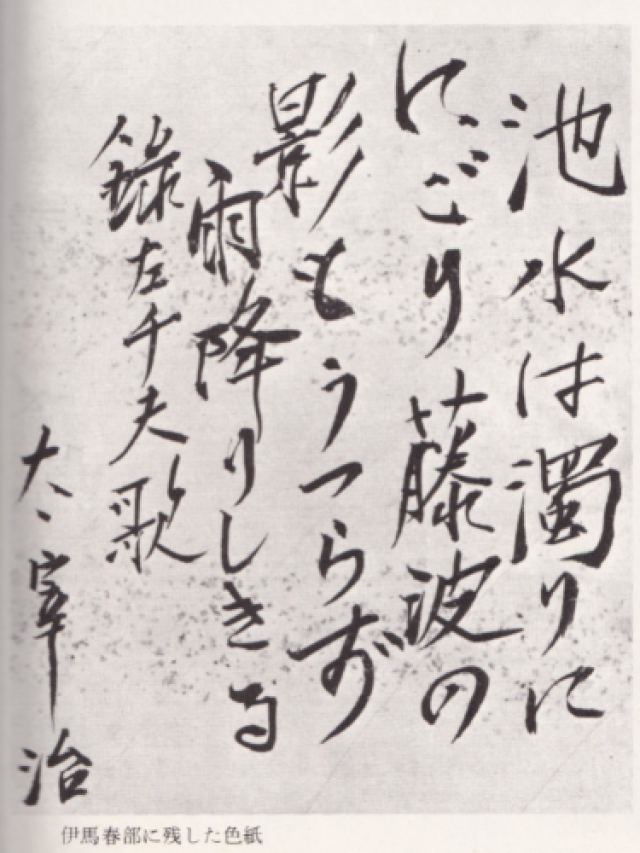 池水は濁りに
にごり藤波の
影もうつらず
雨降りしきる
録左千夫歌
太宰治
伊馬春部に残した色紙